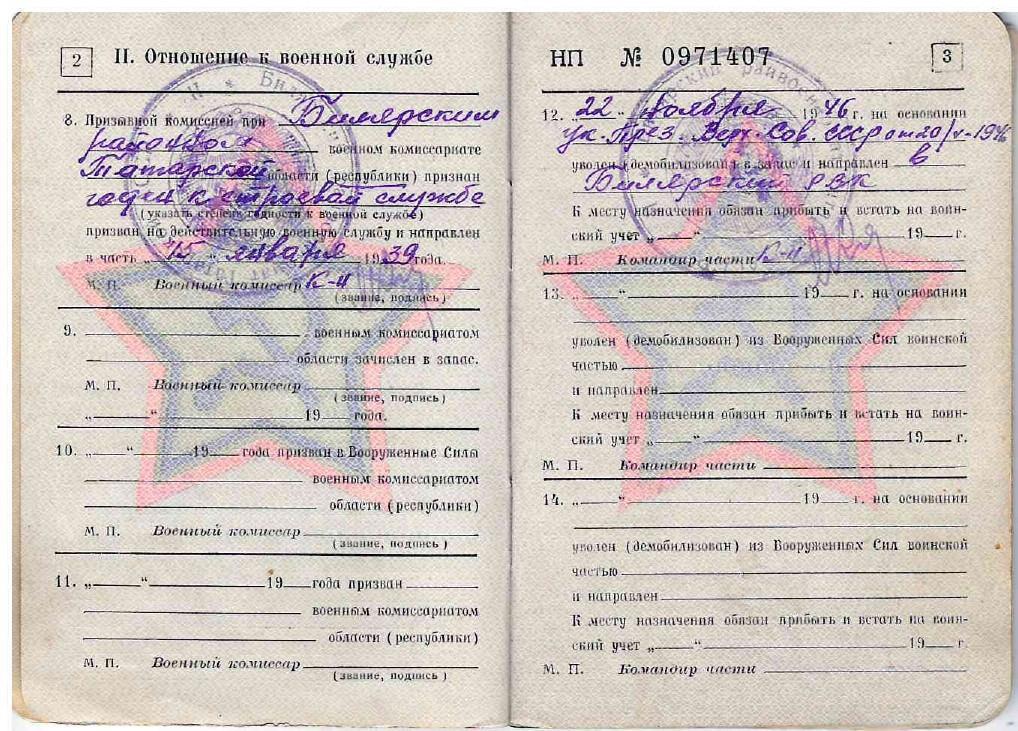 2
II. Отношение к военной службе
8. Призывной комиссией при Билярским
районном военном комиссариате
Татарской области (республики) признан
годен к строевой службе
(указать степень годности к военной службе)
призван на действительную военную службу и направлен
в часть „15" января 1939 года.
М. П. Военный комиссар К-н
(звание, подпись)
9. военным комиссариатом
области зачислен в запас.
М. П. Военный комиссар
(звание, подпись)
„ " 19 года.
10. „ " 19 года призван в Вооруженные Силы
военным комиссариатом
области (республики)
М. П. Военный комиссар
(звание, подпись)
11. „ " 19 года призван
военным комиссариатом
области (республики)
М. П. Военный комиссар
(звание, подпись)
НП № 0971407
3
12. „22" ноября 1946 г. на основании
ук. През. Верх. Сов. СССР от 20/
уволен (демобилизован) в запас и направлен в
Билярский РВК
К месту назначения обязан прибыть и встать на воин-
ский учет „ " 19 г.
М. П. Командир части К-н
13. „ " 19 г. на основании
уволен (демобилизован) из Вооруженных Сил воинской
частью
и направлен
К месту назначения обязан прибыть и встать на воин-
ский учет „ " 19 г.
М. П. Командир части
14. „ " 19 г. на основании
уволен (демобилизован) из Вооруженных Сил воинской
частью
и направлен
К месту назначения обязан прибыть и встать на воин-
ский учет „ " 19 г.
М. П. Командир части